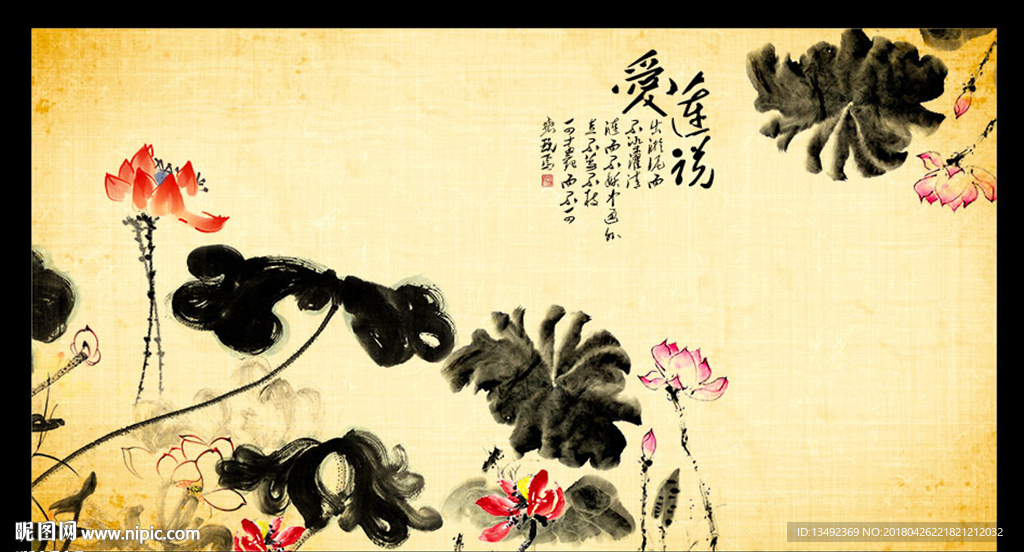 愛蓮说
出淤泥而
不染濯清
漣而不妖中通外
直不蔓不枝
而不可
昵图网 www.nipic.com
ID:13492369 NO:20180426221821212032